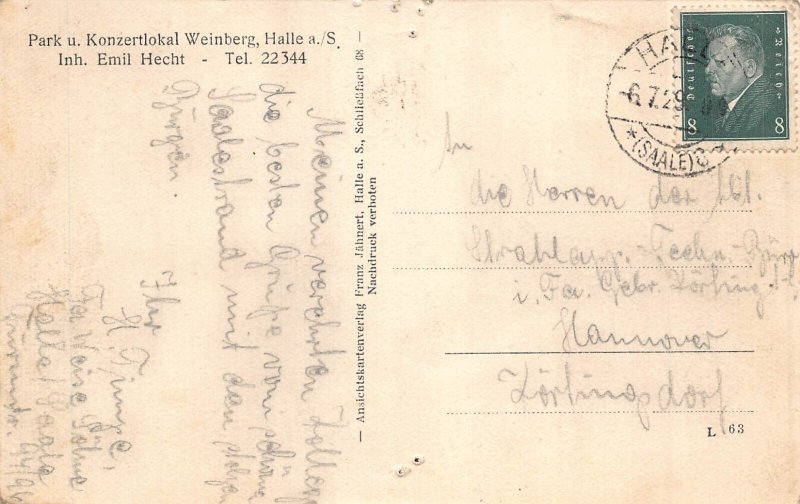 Park u. Konzertlokal Weinberg, Halle a./S.
Inh. Emil Hecht - Tel. 22344
Meinen verehrten Kollegen
die besten Grüße vom schönen
Saalestrand mit den stolzen
Burgen.
Ihr
H.
Fa Weise Söhne
Halle/Saale
— Ansichtskartenverlag Franz Jähnert, Halle a. S., Schließfach 68 —
Nachdruck verboten
Deutsches Reich
8 8
HALLE
6.7.29.
* (SAALE)
An
die Herren der Abt.
Strahlapp.-Techn. Büro
i. Fa. Gebr. Körting
Hannover
Körtingsdorf
L 63